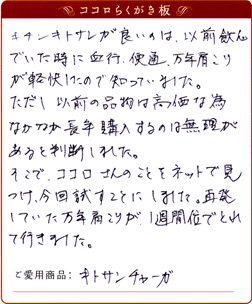 ココロらくがき板
キチンキトサンが良いのは、以前飲ん
でいた時に血行、便通、万年肩こり
が軽快したので知っていました。
ただし以前の品物は高価な為
なかなか長年購入するのは無理が
あると判断しました。
そこで、ココロさんのことをネットで見
つけ、今回試すことにしました。再発
していた万年肩こりが、1週間位でとれ
て行きました。
ご愛用商品：キトサンチャーガ